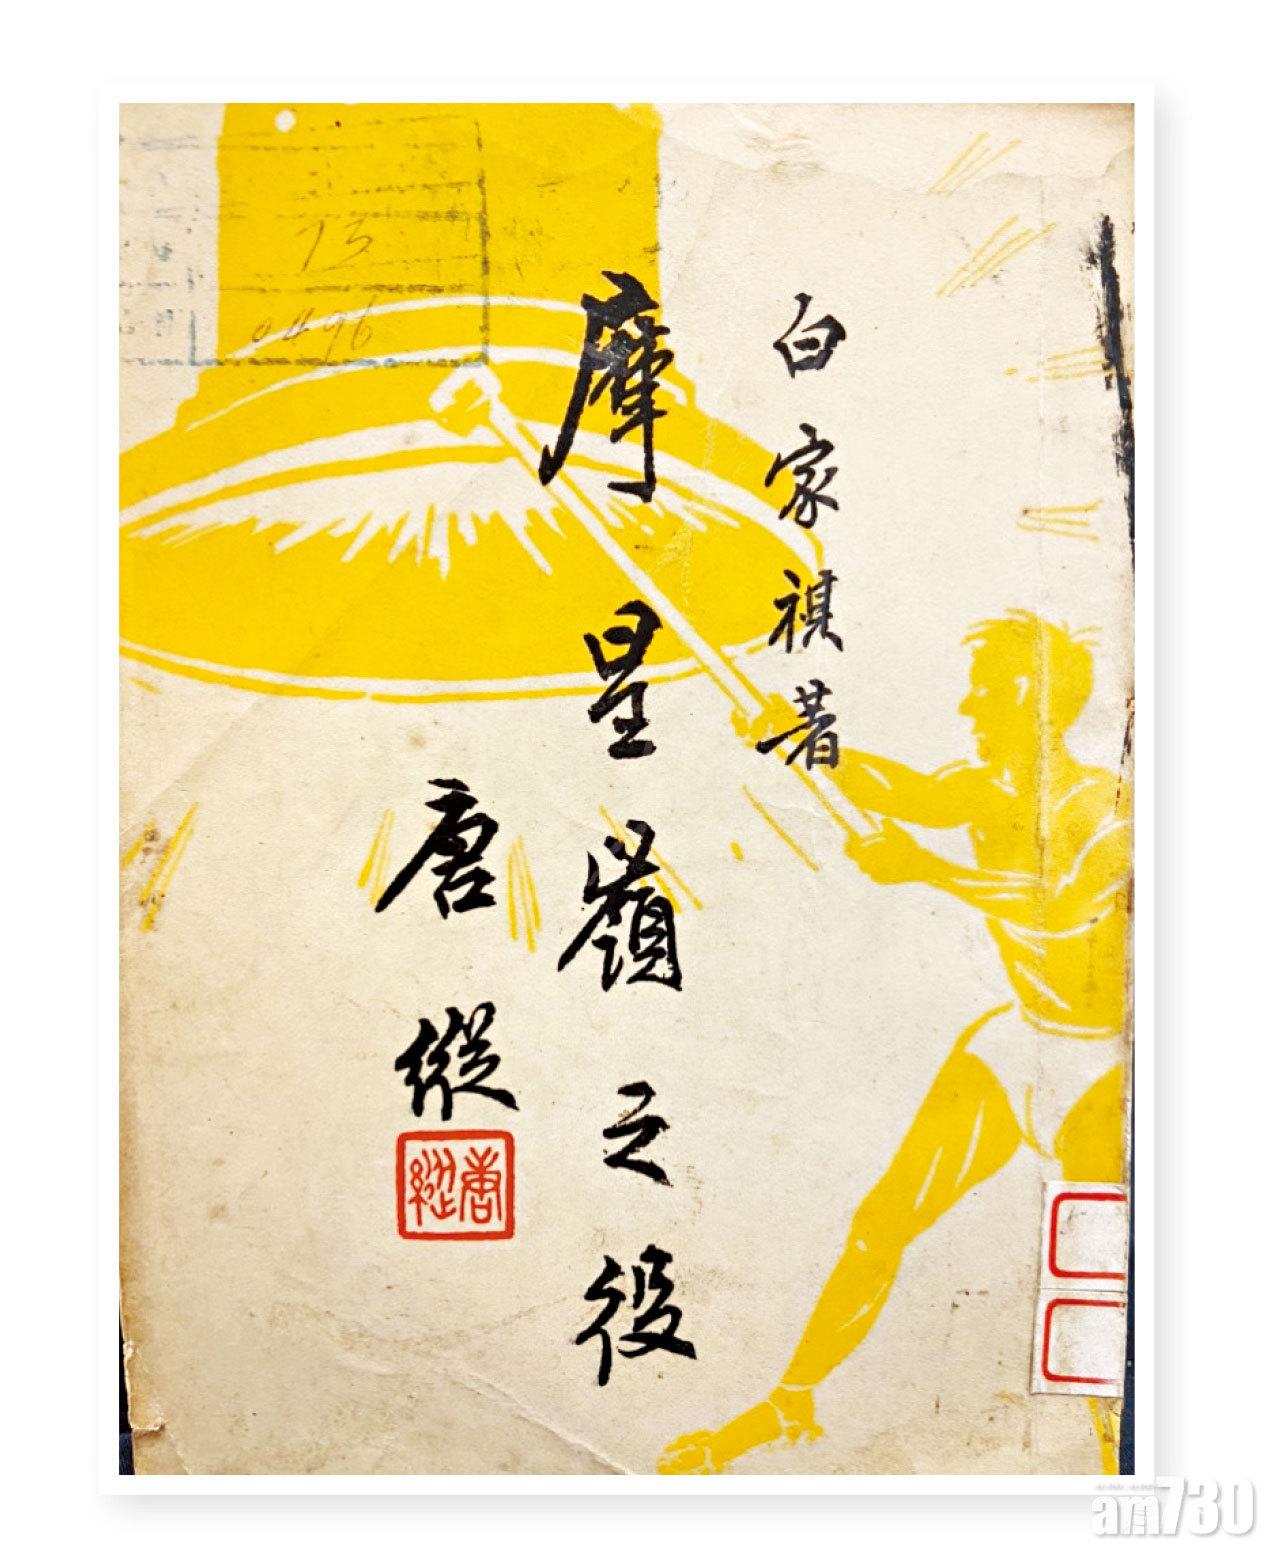 白家祺著
摩星嶺之役
唐縱
唐縱
73
0496
am730